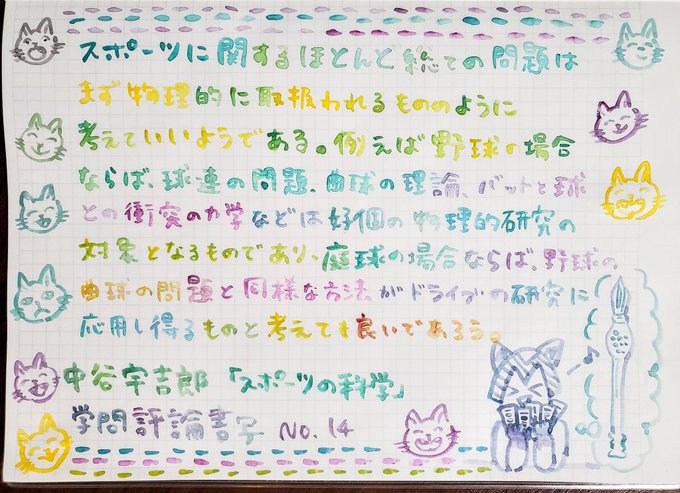 スポーツに関するほとんど総ての問題は
まず物理的に取扱われるもののように
考えていいようである。例えば野球の場合
ならば、球速の問題、曲球の理論、バットと球
との衝突の力学などは好個の物理的研究の
対象となるものであり、庭球の場合ならば、野球の
曲球の問題と同様な方法がドライブの研究に
応用し得るものと考えても良いであろう。
中谷宇吉郎「スポーツの科学」
学問評論書写 No.14